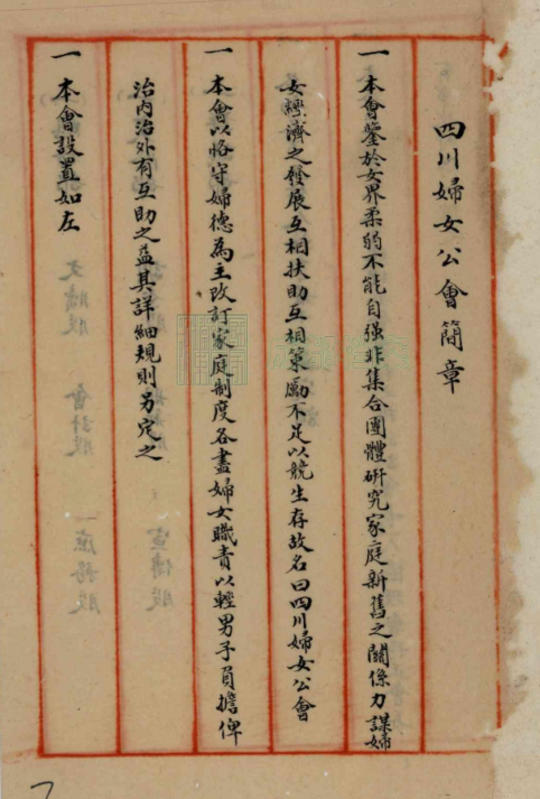 四川婦女公會簡章
一本會鑒於女界柔弱不能自强非集合團體研究家庭新舊之關係力謀婦
女經濟之發展互相扶助互相策勵不足以競生存故名曰四川婦女公會
一本會以恪守婦德為主改訂家庭制度各盡婦女職責以輕男子負擔俾
治內治外有互助之益其詳細規則另定之
一本會設置如左